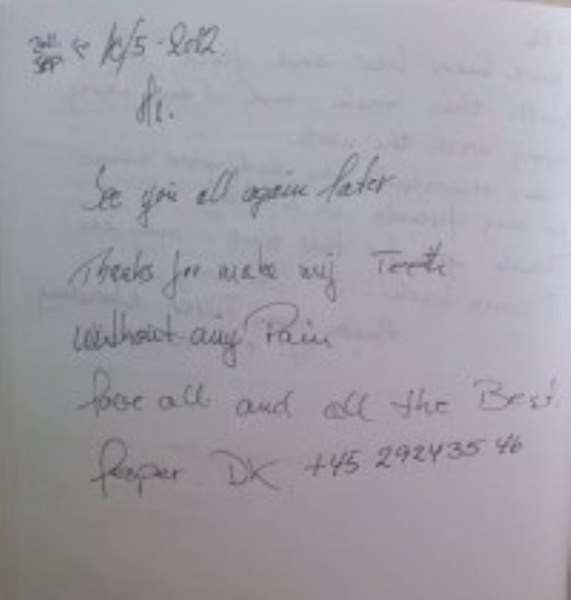 SEP
/5-2012.
Hi.
See you all again later
Thanks for make my Teeth
without any Pain
love all and all the Best
DK +45 29243546